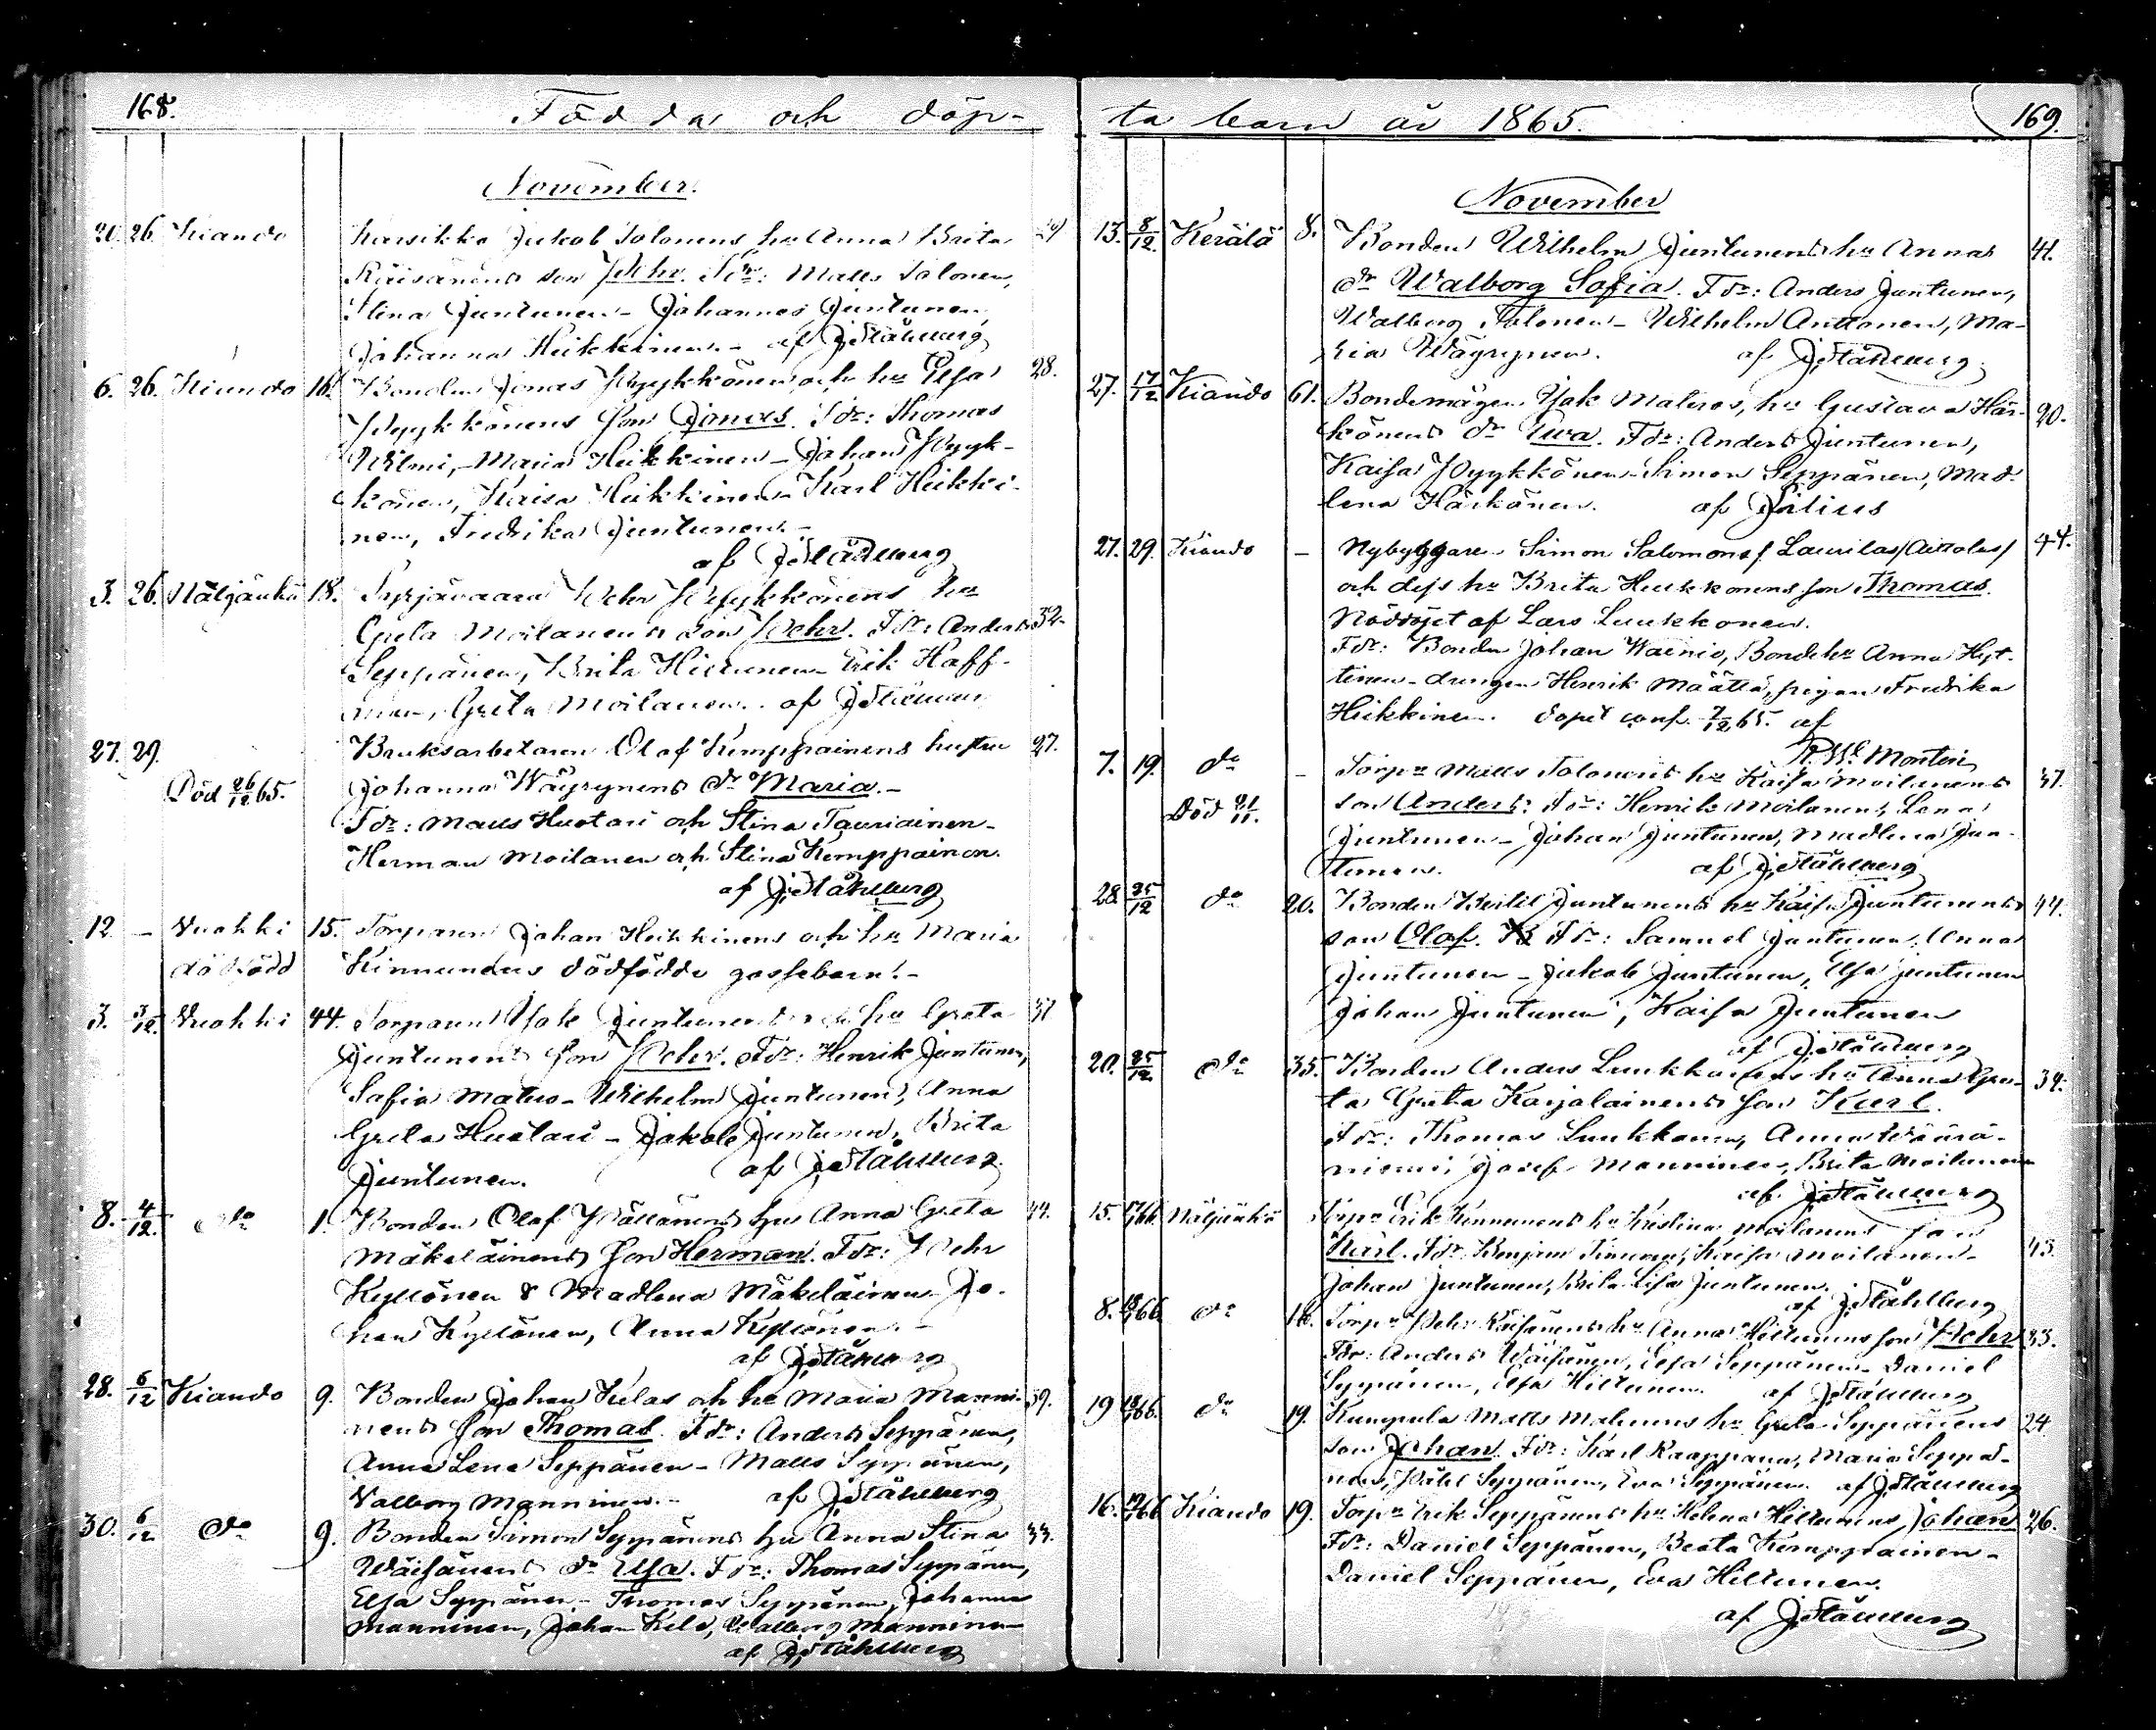 168.
Födda och döp-
November.
20. 26. Kiando Karsikko Jakob Tolonens hu Anna Brita
Räisänens son Pehr. Fdr: Matts Tolonen,
Stina Juntunen - Johannes Juntunen,
Johanna Heikkinen. - af J Ståhlberg
6. 26. Kiando 16. Bonden Jonas Pyykkönen och hu Elsa 28.
Pyykkönens son Jonas. Fdr: Thomas
Wilmi, - Maria Heikkinen - Johan Pyyk-
könen, Kaisa Heikkinen - Karl Heikki-
nen, Fredrika Juntunen. -
af J Ståhlberg
3. 26. Näljänkä 18. Syrjävaara Pehr Pyykkönens hu
Greta Moilanens son Pehr. Fdr: Anders 32.
Seppänen, Brita Hiltunen - Erik Haff-
, Greta Moilanen. af J Ståhlberg
27. 29. Bruksarbetaren Olof Kemppainens hustru 27.
Död 26/12 65. Johanna Wäyrynens dr Maria. -
Fdr: Matts Huotari och Stina Tauriainen -
Herman Moilanen och Stina Kemppainen.
af J Ståhlberg
12. - Vuokki 15. Torparen Johan Heikkinens och hu Maria
dödfödd Kinnunens dödfödde gossebarn. -
3. 3/12. Vuokki 44. Torparen Isak Juntunens och hu Greta 37
Juntunens son Pehr. Fdr: Henrik Juntunen,
Safia Matero - Wilhelm Juntunen, Anna
Greta Huotari - Jakob Juntunen, Brita
Juntunen. af J Ståhlberg
8. 4/12. do 1. Bonden Olof Määttänens hu Anna Greta 44.
Mäkeläinens son Herman. Fdr: Pehr
Kyllönen & Madlena Mäkeläinen - Jo-
han Kyllönen, Anna Kyllönen. -
af J Ståhlberg
28. 6/12 Kiando 9. Bonden Johan Kelas och hu Maria Manni- 39.
nens son Thomas. Fdr: Anders Seppänen,
Anna Lena Seppänen - Matts Seppänen,
Valborg Manninen. - af J Ståhlberg
30. 6/12 do 9. Bonden Simon Seppänens hu Anna Stina 33.
Wäisänens dr Elsa. Fdr: Thomas Seppänen,
Elsa Seppänen - Thomas Seppänen, Johanna
Manninen, Johan Kela, Walborg Manninen
af J Ståhlberg
ta barn år 1865.
169.
November
13. 8/12. Kerälä 8. Bonden Wilhelm Juntunens hu Annas 41.
dr Walborg Sofia. Fdr: Anders Juntunen,
Walborg Tolonen - Wilhelm Anttonen, Ma-
ria Wäyrynen. af J Ståhlberg
27. 17/12 Kiando 61. Bondemågen Isak Materos, hu Gustava Här- 20.
könens dr Eva. Fdr: Anders Juntunen,
Kaisa Pyykkönen - Simon Seppänen, Mad-
lena Härkönen. af J Silius
27. 29. Kiando - Nybyggaren Simon Salomonsf Laurilas/Aittolas/ 44.
och dess hu Brita Heikkonens son Thomas.
Nöddöpt af Lars Luukkonen.
Fdr: Bonden Johan Wainio, Bondehu Anna Hyt-
tinen - drengen Henrik Määttä, pigan Fredrika
Heikkinen. dopet conf. 7/12 65. af
Montin
7. 19. do - Torpn Matts Tolonens hu Kaisa Moilanens 37.
Död 21/11. son Anders. Fdr: Henrik Moilanen, Lena
Juntunen - Johan Juntunen, Madlena Jun-
tunen. af J Ståhlberg
28. 25/12 do 20. Bonden Bertil Juntunens hu Kaisa Juntunens 44.
son Olof. Fdr: Samuel Juntunen, Anna
Juntunen - Jakob Juntunen, Elsa Juntunen
Johan Juntunen, Kaisa Juntunen
af J Ståhlberg
20. 25/12. do 35. Bonden Anders Luukkonens hu Anna Gre- 34.
ta Greta Karjalainens son Karl.
Fdr: Thomas Luukkonen, Anna Määrä-
niemi, Josef Manninen, Brita Moilanen
af J Ståhlberg
15. 66. Näljänkä Torpn Erik Kinnunens hu Kristina Moilanens son
Karl. Fdr: Benjam Kinnunen, Kaisa Moilanen - 43.
Johan Juntunen, Brita Lisa Juntunen.
af J Ståhlberg
8. 66. do 16. Torpn Pehr Räisänens hu Anna Hiltunens son Pehr 33.
Fdr: Anders Wäisänen, Elsa Seppänen - Daniel
Seppänen, Elsa Hiltunen. af J Ståhlberg
19 66. do 19. Kumpula Matts Malinens hu Greta Seppänens 24
son Johan. Fdr: Karl Kaappanen, Maria Seppä-
nen, Pahl Seppänen, Eva Seppänen. af J Ståhlberg
16. 66 Kiando 19. Torpn Erik Seppänens hu Helena Hiltunens Johan 26.
Fdr: Daniel Seppänen, Beata Kemppainen -
Daniel Seppänen, Eva Hiltunen.
af J Ståhlberg